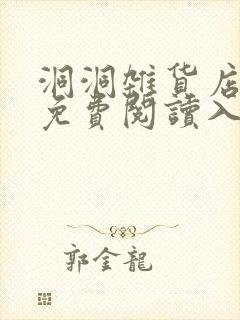 洞洞雜貨店
免費閱讀入
郭金龍